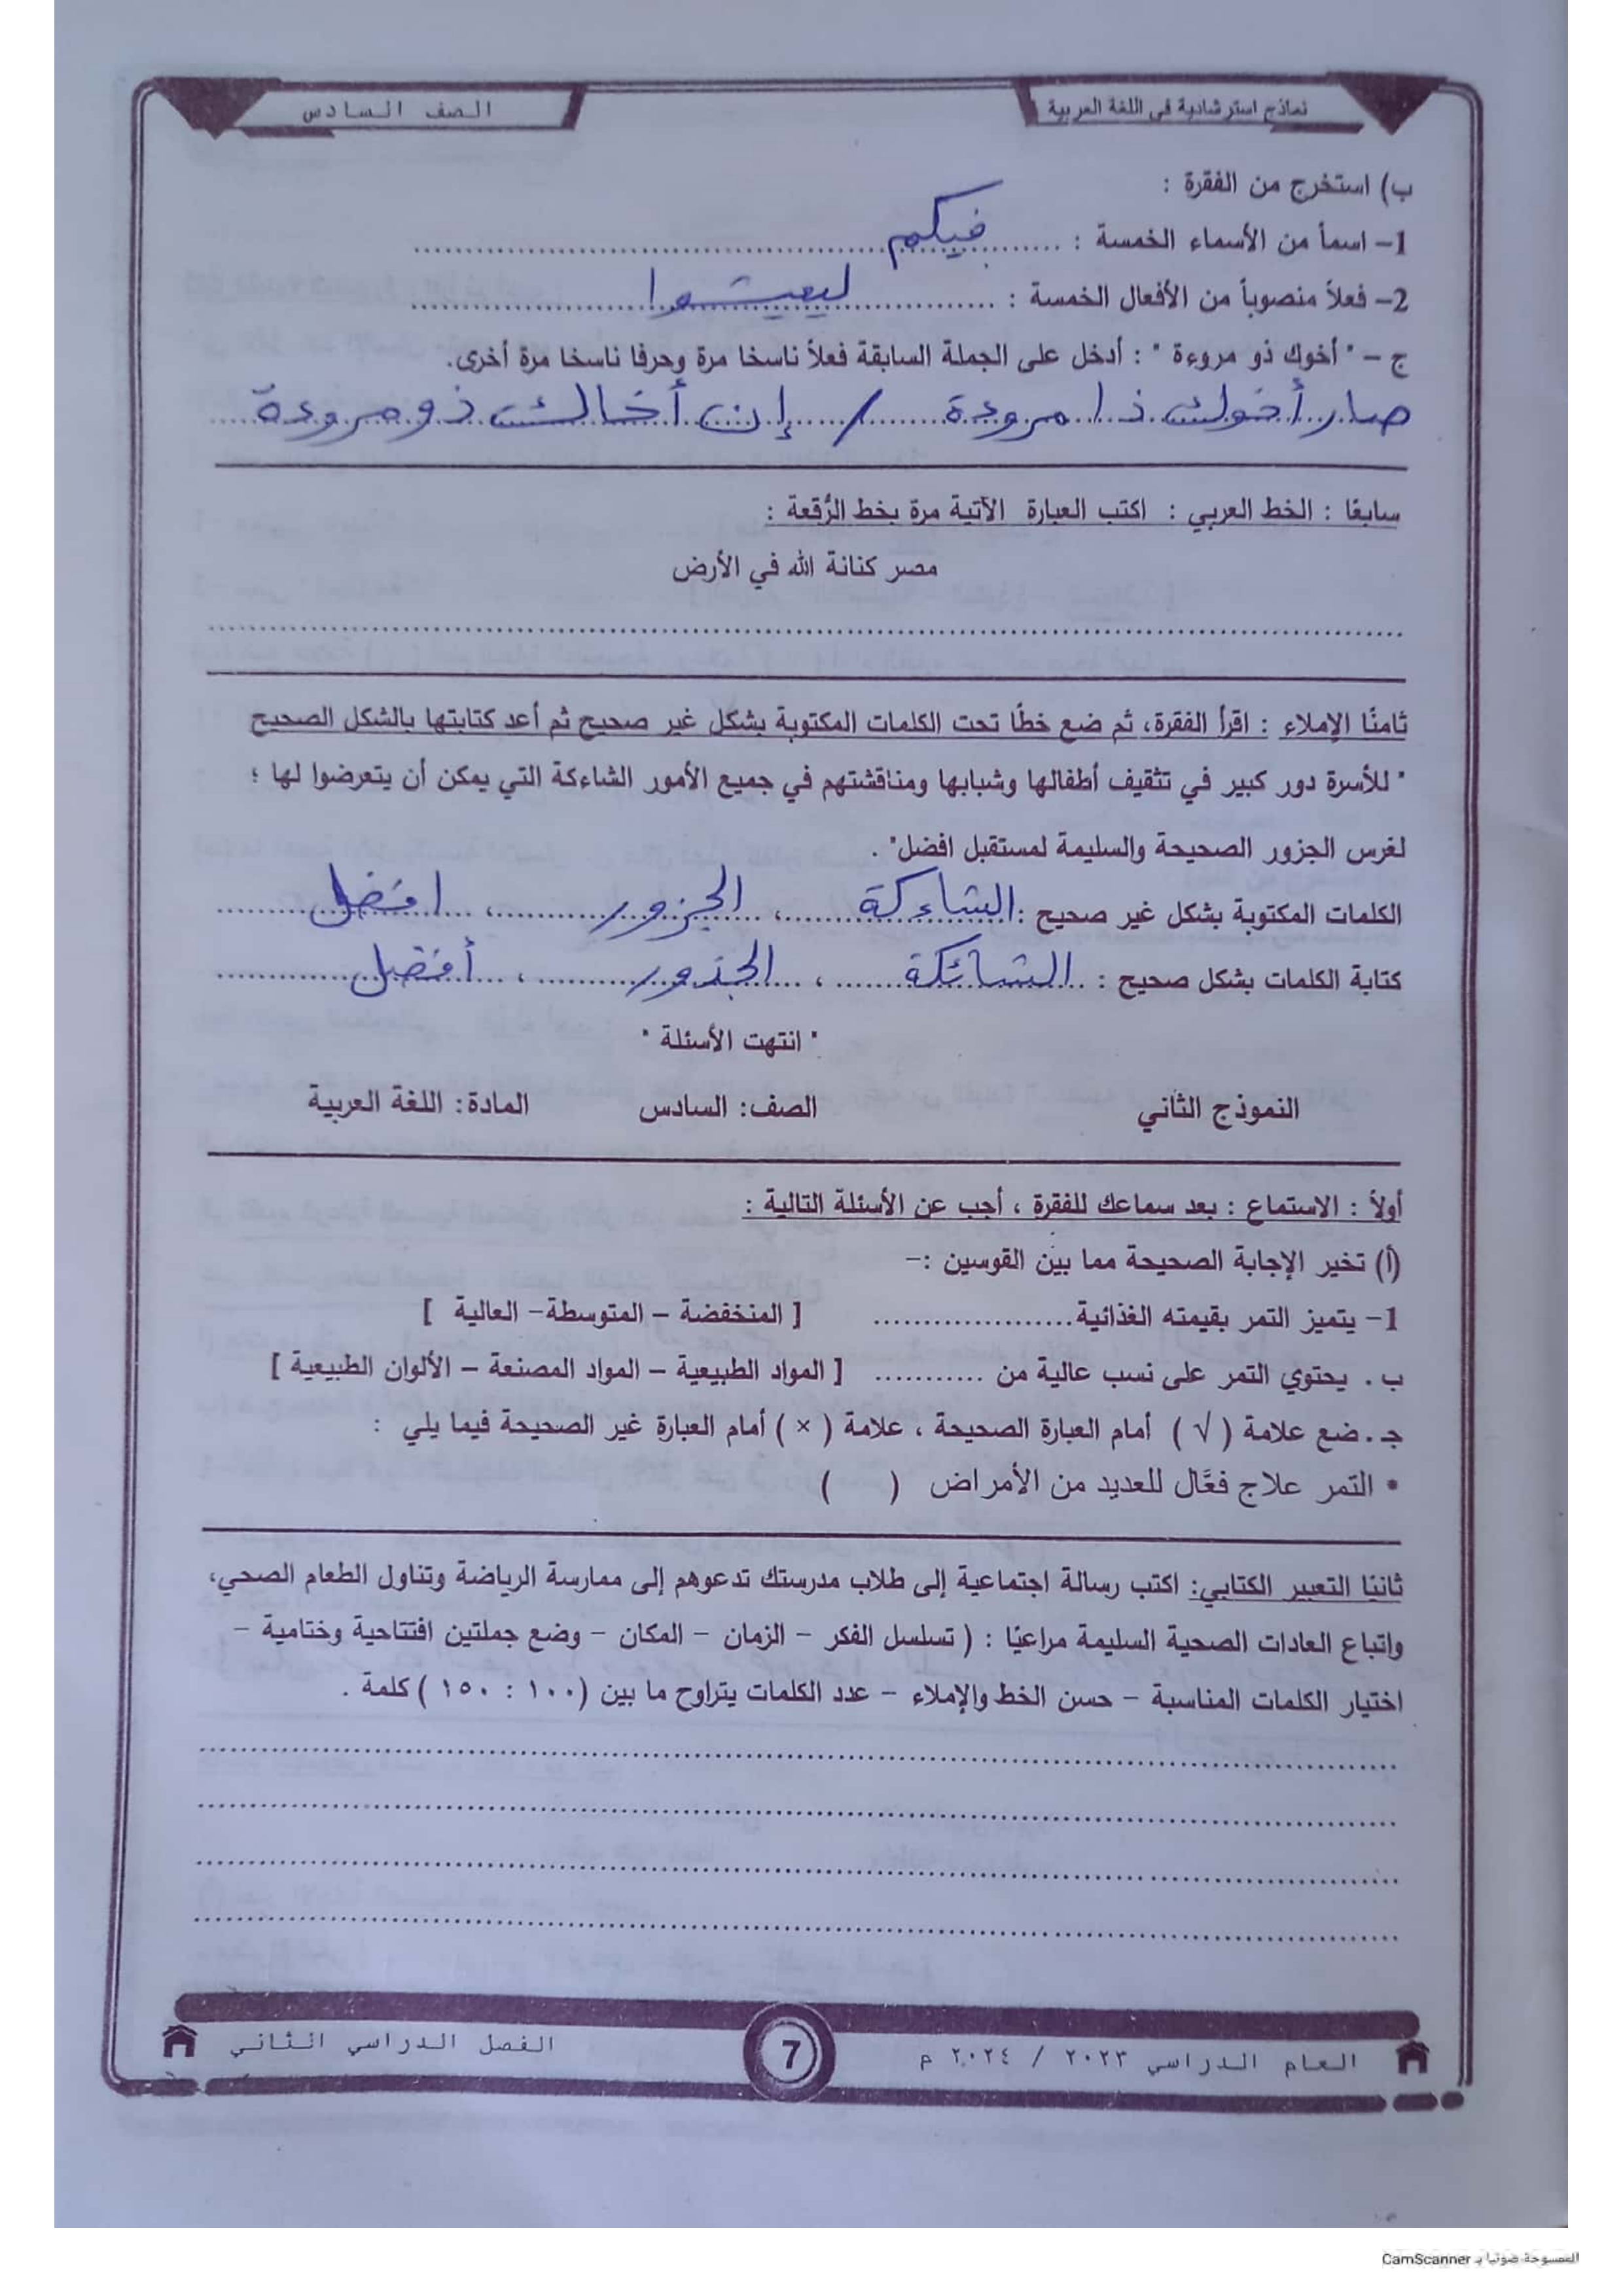 نماذج استرشادية في اللغة العربية
الصف السادس
ب) استخرج من الفقرة :
1- اسماً من الأسماء الخمسة : .......... فيكم ..........
2- فعلاً منصوباً من الأفعال الخمسة : .......... ليعيشوا ..........
ج - " أخوك ذو مروءة " : أدخل على الجملة السابقة فعلاً ناسخا مرة وحرفا ناسخا مرة أخرى.
صار أخوك ذا مروءة / إن أخاك ذو مروءة
سابعًا : الخط العربي : اكتب العبارة الآتية مرة بخط الرُّقعة :
مصر كنانة الله في الأرض
ثامنًا الإملاء : اقرأ الفقرة، ثم ضع خطًا تحت الكلمات المكتوبة بشكل غير صحيح ثم أعد كتابتها بالشكل الصحيح
" للأسرة دور كبير في تثقيف أطفالها وشبابها ومناقشتهم في جميع الأمور الشاءكة التي يمكن أن يتعرضوا لها ؛
لغرس الجزور الصحيحة والسليمة لمستقبل افضل" .
الكلمات المكتوبة بشكل غير صحيح : الشاءكة ، الجزور ، افضل
كتابة الكلمات بشكل صحيح : الشائكة ، الجذور ، أفضل
" انتهت الأسئلة "
النموذج الثاني الصف: السادس المادة: اللغة العربية
أولاً : الاستماع : بعد سماعك للفقرة ، أجب عن الأسئلة التالية :
(أ) تخير الإجابة الصحيحة مما بين القوسين :-
1- يتميز التمر بقيمته الغذائية.................... [ المنخفضة - المتوسطة- العالية ]
ب . يحتوي التمر على نسب عالية من ........... [ المواد الطبيعية - المواد المصنعة - الألوان الطبيعية ]
جـ . ضع علامة ( √ ) أمام العبارة الصحيحة ، علامة ( × ) أمام العبارة غير الصحيحة فيما يلي :
• التمر علاج فعَّال للعديد من الأمراض ( )
ثانيًا التعبير الكتابي: اكتب رسالة اجتماعية إلى طلاب مدرستك تدعوهم إلى ممارسة الرياضة وتناول الطعام الصحي،
واتباع العادات الصحية السليمة مراعيًا : ( تسلسل الفكر - الزمان - المكان - وضع جملتين افتتاحية وختامية -
اختيار الكلمات المناسبة - حسن الخط والإملاء - عدد الكلمات يتراوح ما بين (١٠٠ : ١٥٠ ) كلمة .
العام الدراسي ٢٠٢٣ / ٢٠٢٤ م
7
الفصل الدراسي الثاني
الممسوحة ضوئيا بـ CamScanner